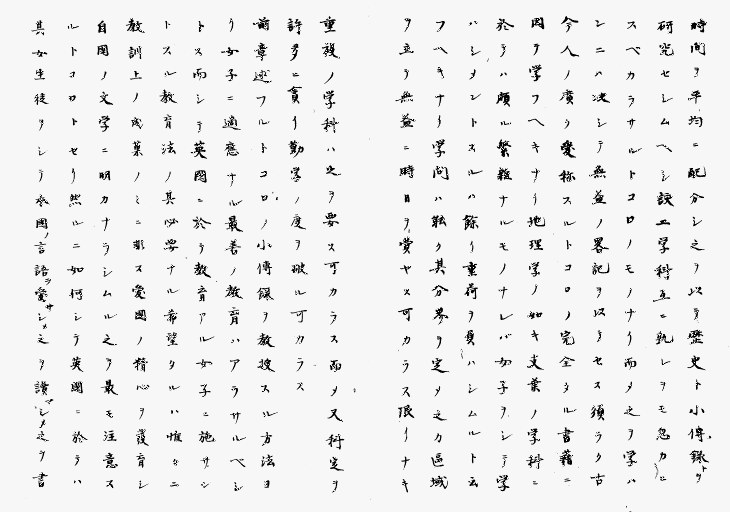 時間ヲ平均ニ配分シ之ヲ以テ歴史ト小傳録トヲ
研究セシムベシ該二学科互ニ孰レヲモ忽カニ
スベカラサルトコロノモノナリ而〆之ヲ学ハ
シニハ决シテ無益ノ畧記ヲ以テセス須ラク古
今人ノ廣ク愛称スルトコロノ完全タル書籍ニ
因ヲ学フヘキナリ地理学ノ如キ支葉ノ学科ニ
於テハ頗ル繁殺ナルモノナレバ女子ヲシテ学
ハシメントスルハ餘リ重荷ヲ負ハシムルト云
フヘキナリ学問ハ転ク其分界ヲ定メ之カ區域
ヲ立テ無益ニ時日ヲ費ヤス可カラス限リナキ
重複ノ学科ハ之ヲ要ス可カラス而〆又科定ヲ
許多ニ貪リ勤学ノ度ヲ破ル可カラス
前章述フルトコロノ小傳録ヲ教授スル方法ヨ
リ女子ニ適應ナル最善ノ教育ハアラサルベシ
トス而シテ英國ニ於テ教育アル女子ニ施サン
トスル教育法ノ其必要ナル希望タルハ惟々ニ
教訓上ノ成菓ノミニ非ス愛國ノ精心ヲ養育シ
自國ノ文学ニ明カナラシムル之ヲ最モ注意ス
ルトコロトセリ然ルニ如何シテ英國ニ於テハ
其女生徒ヲシテ本國ノ言語ヲ愛サシメ之ヲ讀マシメ之ヲ書